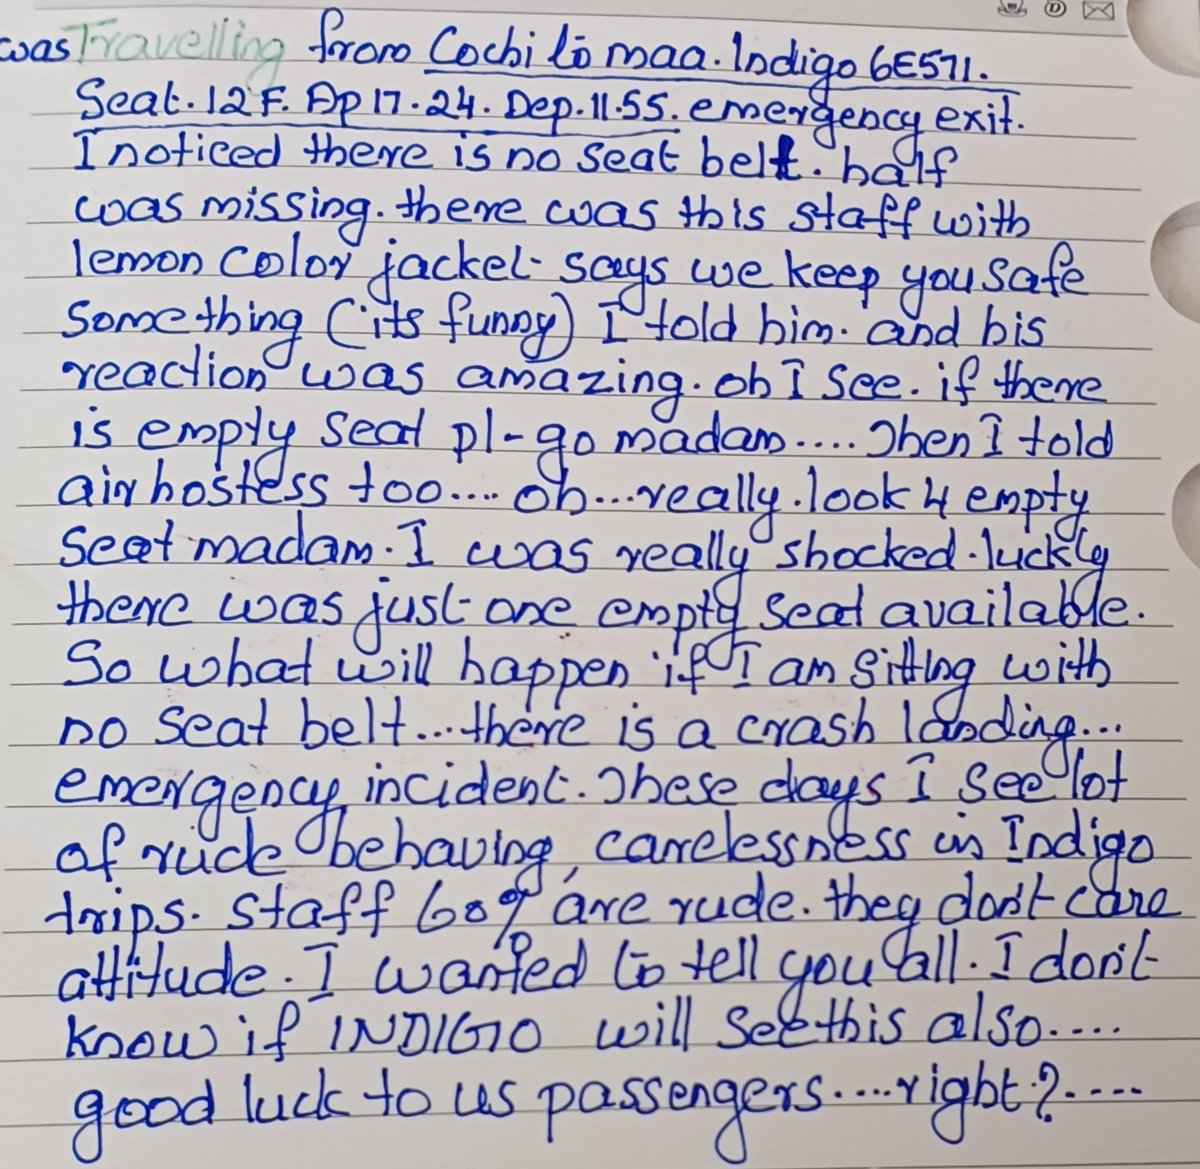 was Travelling from Cochi to maa. Indigo 6E571.
Seat. 12F. Ap 17.24. Dep. 11.55. emergency exit.
I noticed there is no seat belt. half
was missing. there was this staff with
lemon color jacket - says we keep you safe
Something (its funny) I told him. and his
reaction was amazing. oh I see. if there
is empty seat pl-go madam.... Then I told
air hostess too.... oh...really. look 4 empty
Seat madam. I was really shocked. luckly
there was just one empty seat available.
So what will happen if I am sitting with
no seat belt...there is a crash landing...
emergency incident. These days I see lot
of rude behaving, carelessness in Indigo
trips. staff 60% are rude. they don't care
attitude. I wanted to tell you all. I don't
know if INDIGO will see this also....
good luck to us passengers....right?....